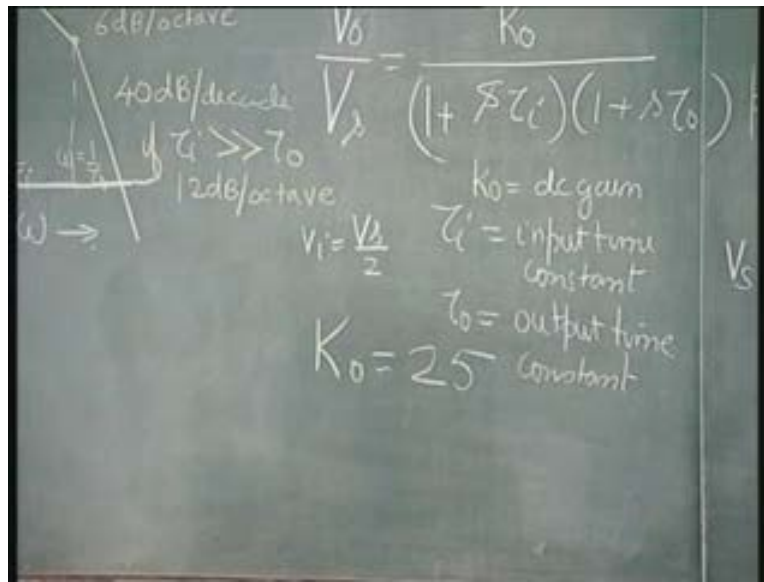 6dB/octave
40dB/decade
if τi >> τo
12dB/octave
ω = 1/τo
τi
ω →
Vo/Vs = Ko/((1 + sτi)(1 + sτo))
Ko = dc gain
τi = input time
constant
Vi = Vs/2
τo = output time
constant
Ko = 25
Vs